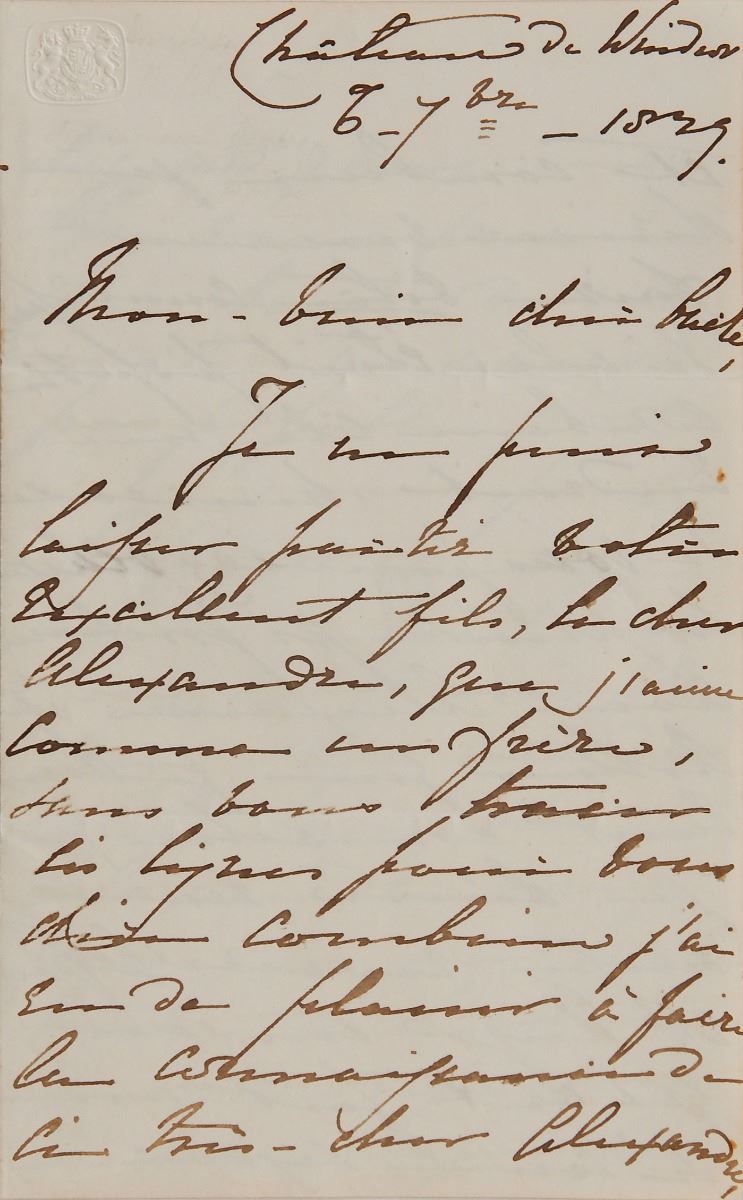 Château de Windsor
6 - 7bre - 1839.
Mon - bien cher Oncle,
Je ne puis
laisser partir votre
excellent fils, le cher
Alexandre, que j'aime
comme un frère,
sans vous tracer
ces lignes pour vous
dire combien j'ai
eu de plaisir à faire
la connaissance de
ce très - cher Alexandre,